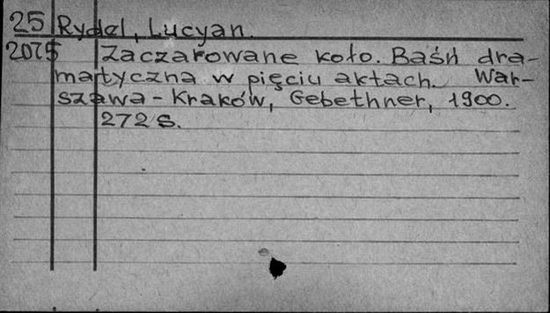 25 Rydel, Lucyan.
2075 Zaczarowane koło. Baśń dra-
matyczna w pięciu aktach. War-
szawa - Kraków, Gebethner, 1900.
272 s.